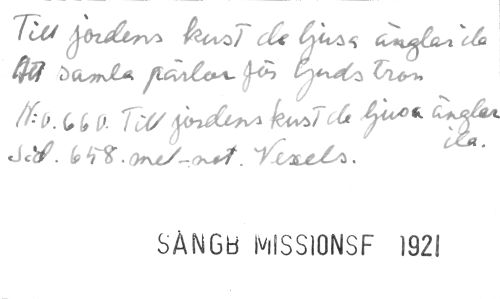 Till jordens kust de ljusa änglar ila
Att samla pärlor för Guds tron
N:o. 660. Till jordens kust de ljusa änglar ila.
Sid. 658. mel-not. Vexels.
SÅNGB MISSIONSF 1921